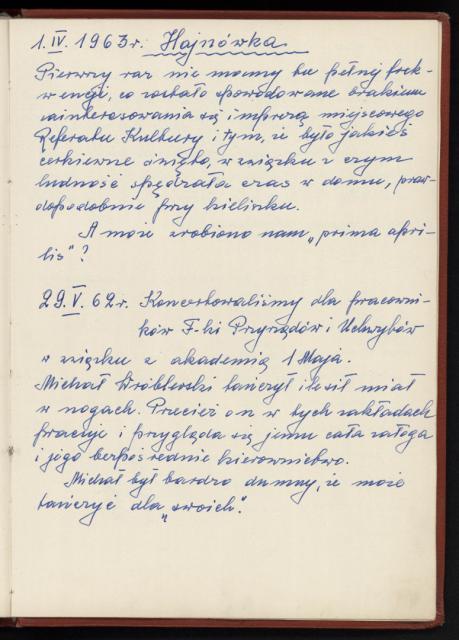 1.IV.1963r. Hajnówka
Pierwszy raz nie mamy tu pełnej frek-
wencji, co zostało spowodowane brakiem
zainteresowania się imprezą miejscowego
Referatu Kultury i tym, że było jakieś
cerkiewne święto, w związku z czym
ludność spędzała czas w domu, praw-
dopodobnie przy kieliszku.
A może zrobiono nam „prima apri-
lis"?
29.V.62r. Koncertowaliśmy dla pracowni-
ków F-ki Przyrządów i Uchwytów
w związku z akademią 1 Maja.
Michał Wróblewski tańczył i leźił miał
w nogach. Przecież on w tych zakładach
pracuje i przygląda się jemu cała załoga
i jego bezpośrednie kierownictwo.
Michał był bardzo dumny, że może
tańczyć dla „swoich".